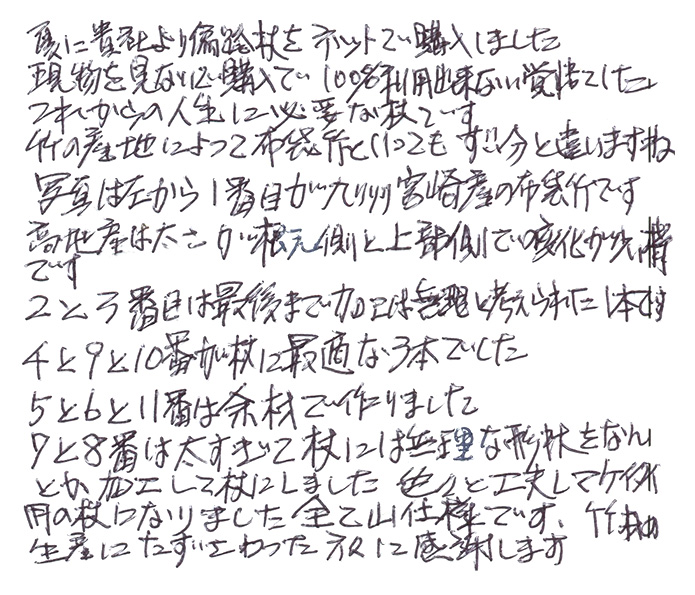 夏に貴社より偏路杖をネットで購入しました
現物を見ない購入で100%利用出来ない覚悟でした
これからの人生に必要な杖です
竹の産地によって布袋竹といってもずい分と違いますね
写真は左から1番目が九州宮崎産の布袋竹です
高地産は太さが根元側と上部側での変化が少
です
2と3番目は最後まで加工は無理と考えられた1本
4と9と10番が杖に最適な3本でした
5と6と11番は余材で作りました
7と8番は太すぎて杖には無理な形状をなん
とか加工して杖にしました 色々と工夫して
用の杖になりました全て山仕様です、竹杖の
生産にたずさわった方に感謝します